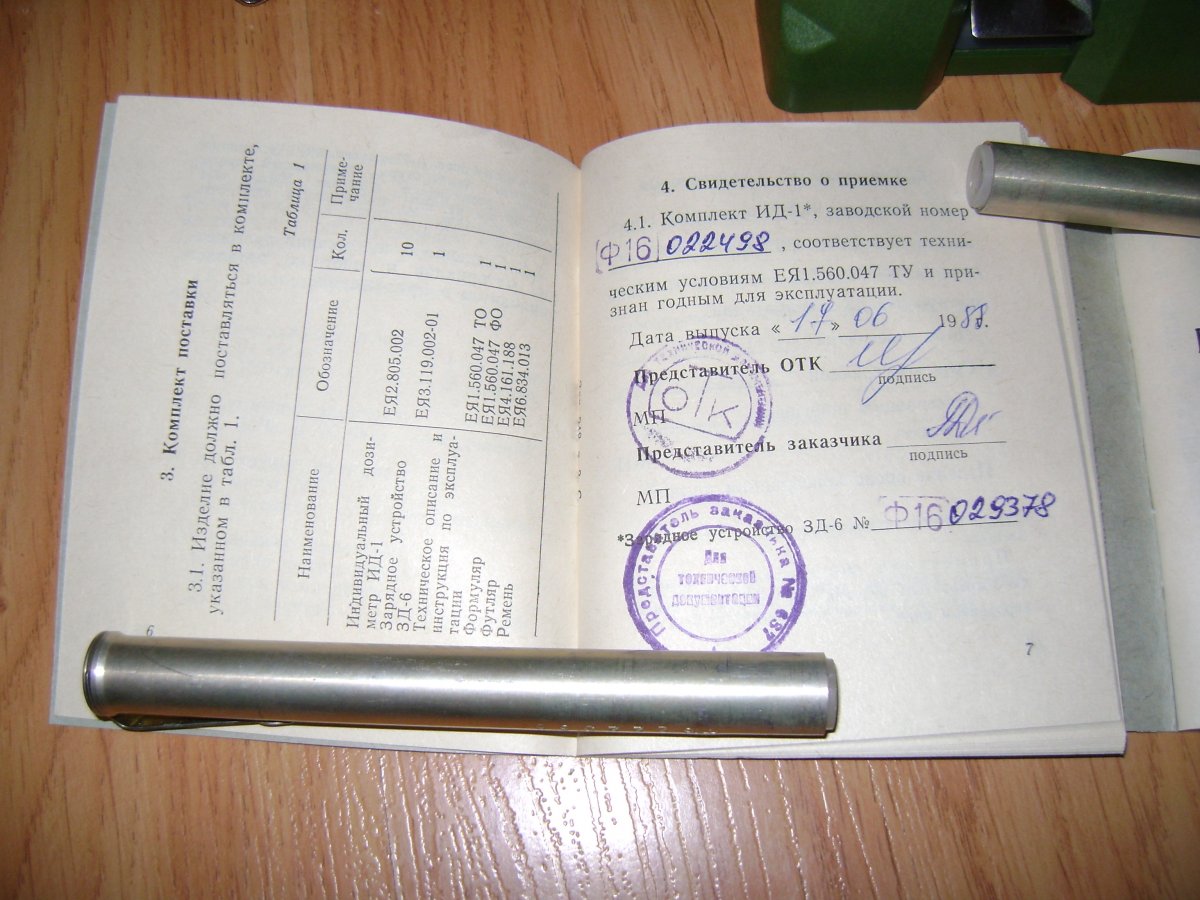 3. Комплект поставки
3.1. Изделие должно поставляться в комплекте,
указанном в табл. 1.
Таблица 1
Наименование Обозначение Кол. Приме-
чание
Индивидуальный дози-
метр ИД-1 ЕЯ2.805.002 10
Зарядное устройство
ЗД-6 ЕЯ3.119.002-01 1
Техническое описание и
инструкция по эксплуа-
тации ЕЯ1.560.047 ТО 1
Формуляр ЕЯ1.560.047 ФО 1
Футляр ЕЯ4.161.188 1
Ремень ЕЯ6.834.013 1
6
4. Свидетельство о приемке
4.1. Комплект ИД-1*, заводской номер
Ф16 022498, соответствует техни-
ческим условиям ЕЯ1.560.047 ТУ и при-
знан годным для эксплуатации.
Дата выпуска «17» 06 1988.
Представитель ОТК
подпись
МП
ОТК
Представитель заказчика
подпись
МП
*Зарядное устройство ЗД-6 № Ф16 029378
Представитель заказчика № 637
Для
технической
документации
7